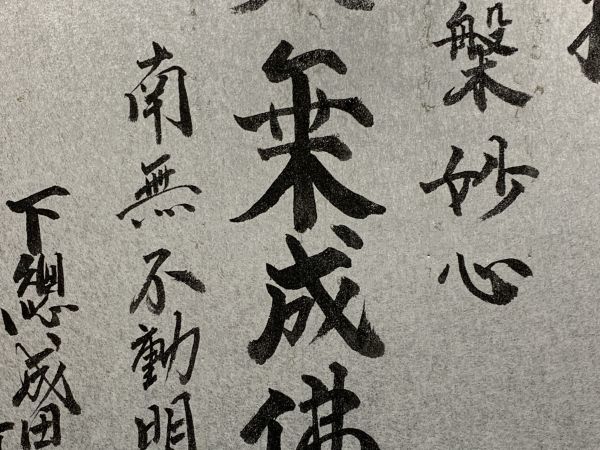 槃妙心
乗成佛
南無不動明
下總成田